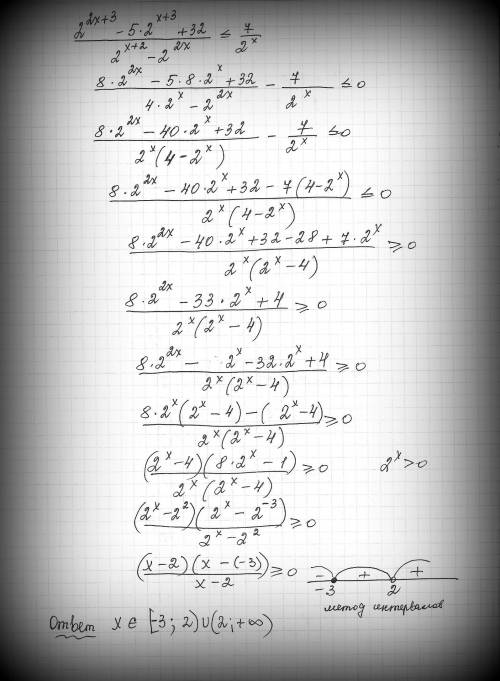 (2^(2x+3) − 5·2^(x+3) + 32)/(2^(x+2) − 2^(2x)) ≤ 7/2^x
(8·2^(2x) − 5·8·2^x + 32)/(4·2^x − 2^(2x)) − 7/2^x ≤ 0
(8·2^(2x) − 40·2^x + 32)/(2^x(4 − 2^x)) − 7/2^x ≤ 0
(8·2^(2x) − 40·2^x + 32 − 7(4 − 2^x))/(2^x(4 − 2^x)) ≤ 0
(8·2^(2x) − 40·2^x + 32 − 28 + 7·2^x)/(2^x(2^x − 4)) ≥ 0
(8·2^(2x) − 33·2^x + 4)/(2^x(2^x − 4)) ≥ 0
(8·2^(2x) − 2^x − 32·2^x + 4)/(2^x(2^x − 4)) ≥ 0
(8·2^x(2^x − 4) − (2^x − 4))/(2^x(2^x − 4)) ≥ 0
((2^x − 4)(8·2^x − 1))/(2^x(2^x − 4)) ≥ 0 2^x > 0
((2^x − 2^2)(2^x − 2^(−3)))/(2^x − 2^2) ≥ 0
((x − 2)(x − (−3)))/(x − 2) ≥ 0 − + +
−3 2
метод интервалов
Ответ x ∈ [−3; 2) ∪ (2; +∞)